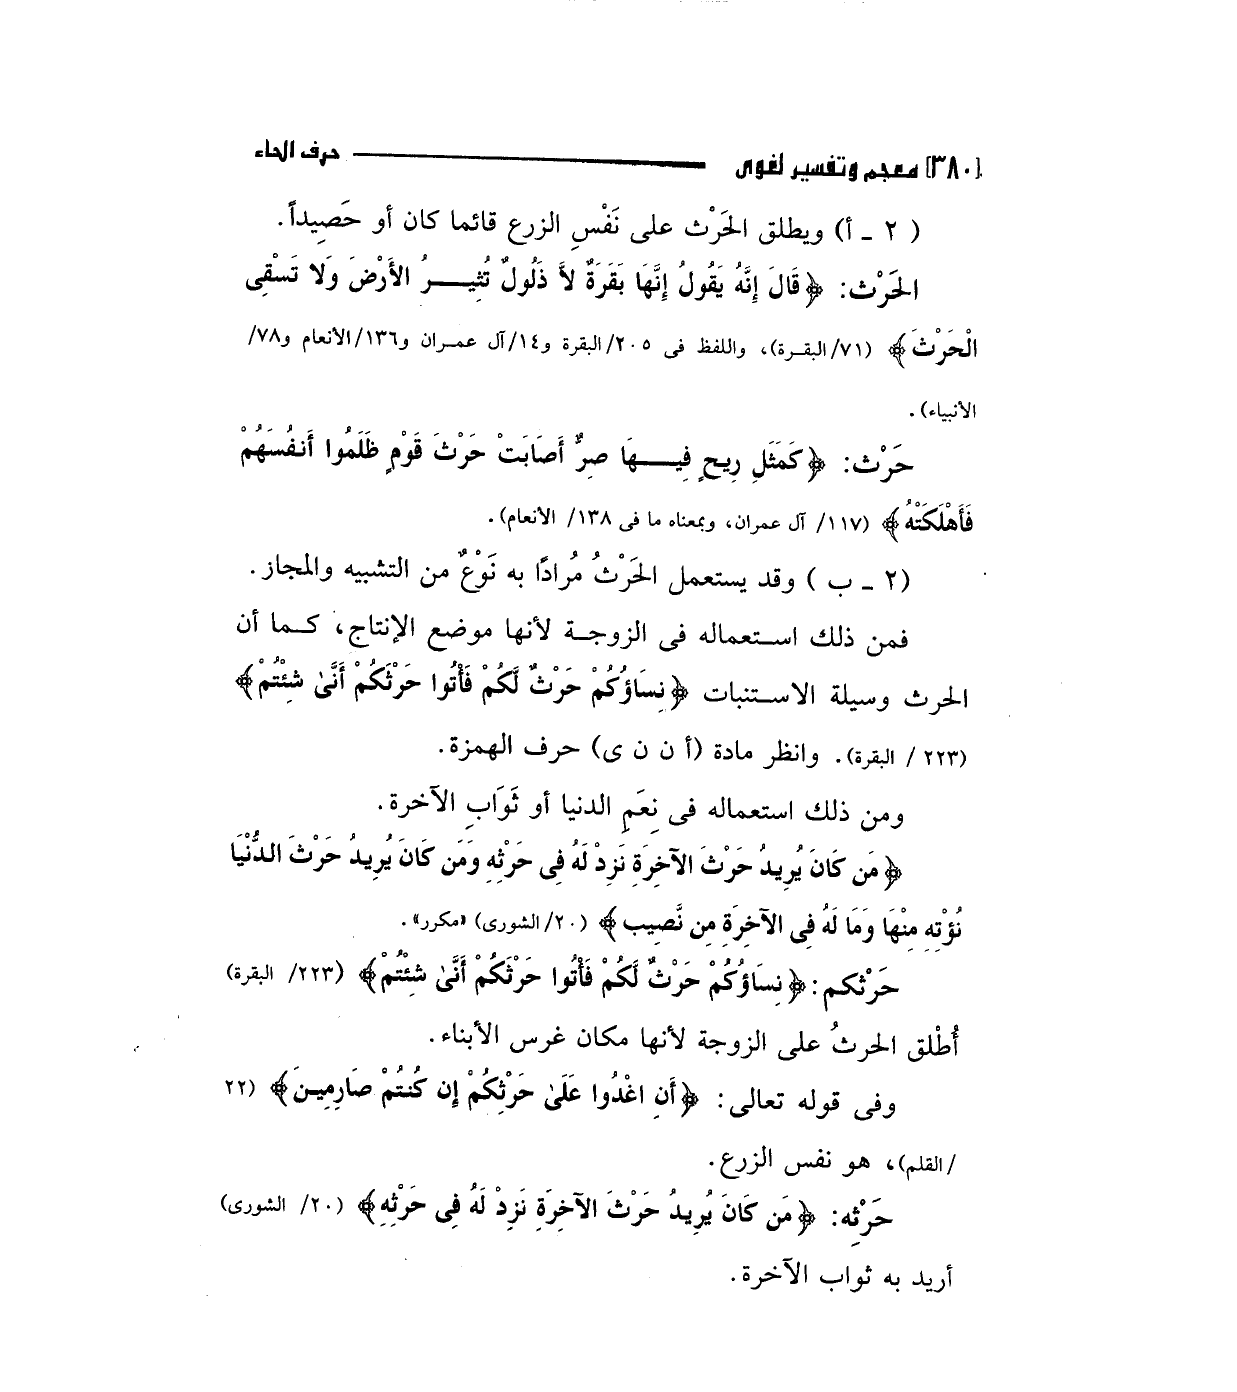 [٣٨٠] معجم وتفسير لغوى حرف الحاء
( ٢ ـ أ) ويطلق الحَرْث على نَفْسِ الزرع قائما كان أو حَصِيداً.
الحَرْث: ﴿قَالَ إِنَّهُ يَقُولُ إِنَّهَا بَقَرَةٌ لاَّ ذَلُولٌ تُثِيرُ الأَرْضَ وَلا تَسْقِى
الْحَرْثَ﴾ (٧١/البقرة)، واللفظ فى ٢٠٥/البقرة و١٤/آل عمران و١٣٦/الأنعام و٧٨/
الأنبياء).
حَرْث: ﴿كَمَثَلِ رِيحٍ فِيهَا صِرٌّ أَصَابَتْ حَرْثَ قَوْمٍ ظَلَمُوا أَنفُسَهُمْ
فَأَهْلَكَتْهُ﴾ (١١٧/ آل عمران، وبمعناه ما فى ١٣٨/ الأنعام).
(٢ ـ ب ) وقد يستعمل الحَرْثُ مُرادًا به نَوْعٌ من التشبيه والمجاز.
فمن ذلك استعماله فى الزوجة لأنها موضع الإنتاج، كما أن
الحرث وسيلة الاستنبات ﴿نِسَاؤُكُمْ حَرْثٌ لَّكُمْ فَأْتُوا حَرْثَكُمْ أَنَّىٰ شِئْتُمْ﴾
(٢٢٣ / البقرة). وانظر مادة (أ ن ن ى) حرف الهمزة.
ومن ذلك استعماله فى نِعَمِ الدنيا أو ثَوَابِ الآخرة.
﴿مَن كَانَ يُرِيدُ حَرْثَ الآخِرَةِ نَزِدْ لَهُ فِى حَرْثِهِ وَمَن كَانَ يُرِيدُ حَرْثَ الدُّنْيَا
نُؤْتِهِ مِنْهَا وَمَا لَهُ فِى الآخِرَةِ مِن نَّصِيب﴾ (٢٠/الشورى) «مكرر».
حَرْثكم: ﴿نِسَاؤُكُمْ حَرْثٌ لَّكُمْ فَأْتُوا حَرْثَكُمْ أَنَّىٰ شِئْتُمْ﴾ (٢٢٣/ البقرة)
أُطْلق الحرثُ على الزوجة لأنها مكان غرس الأبناء.
وفى قوله تعالى: ﴿أَنِ اغْدُوا عَلَىٰ حَرْثِكُمْ إِن كُنتُمْ صَارِمِينَ﴾ (٢٢
/القلم)، هو نفس الزرع.
حَرْثِه: ﴿مَن كَانَ يُرِيدُ حَرْثَ الآخِرَةِ نَزِدْ لَهُ فِى حَرْثِهِ﴾ (٢٠/ الشورى)
أريد به ثواب الآخرة.